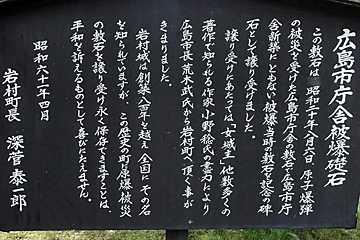 広島市庁舎被爆礎石
この敷石は、昭和二十年八月六日、原子爆弾
の被災で受けた広島市庁舎の敷石で広島市庁
舎新築にともない被爆当時の敷石を記念の碑
石として譲り受けました。
譲り受けにあたっては「女城主」他数多くの
著作で知られる作家小野稔氏の盡力により
広島市長荒木武氏から岩村町へ頂く事が
きまりました。
岩村城は創築八百年を越え全国にその名
を知られていますが、この歴史の町に原爆被災
の敷石を譲り受け永く保存できますことは、
平和を訴えるものとして喜びにたえません。
昭和六十一年四月
岩村町長 深萱泰一郎